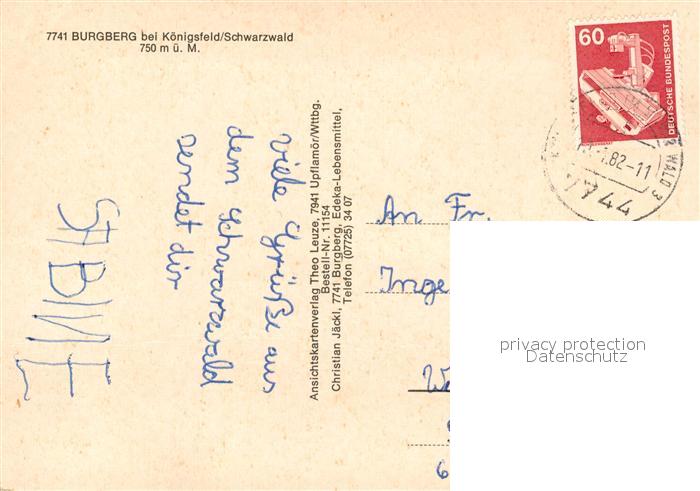 7741 BURGBERG bei Königsfeld/Schwarzwald
750 m ü. M.
viele Grüße aus
dem Schwarzwald
sendet dir
SABINE
Ansichtskartenverlag Theo Leuze, 7941 Upflamör/Wttbg.
Bestell-Nr. 11154
Christian Jäckl, 7741 Burgberg, Edeka-Lebensmittel,
Telefon (07725) 34 07
60
DEUTSCHE BUNDESPOST
.82-11
WALD 3
7744
An Fr.
Inge
privacy protection
Datenschutz